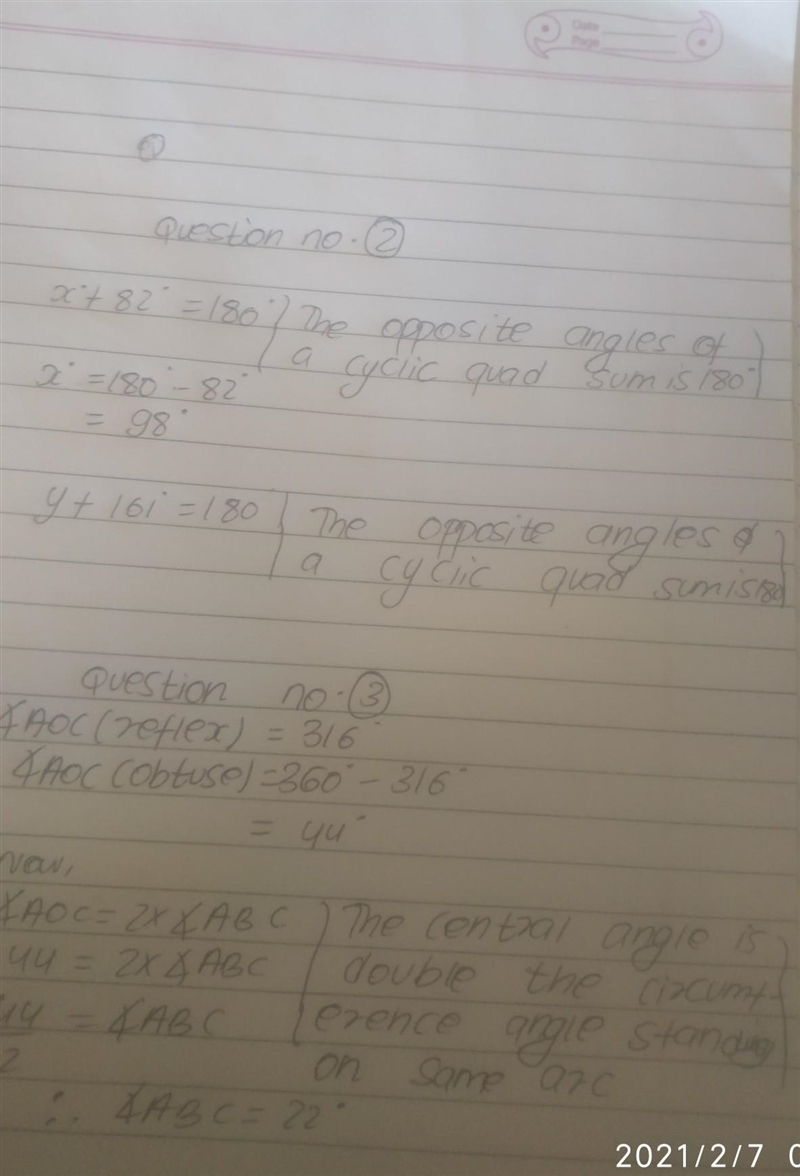 Date
Page
Question no. ②
x° + 82° = 180° } The opposite angles of
a cyclic quad sum is 180°
x° = 180° - 82°
= 98°
y + 161° = 180 } The opposite angles of
a cyclic quad sum is 180
Question no. ③
∡AOC (reflex) = 316°
∡AOC (obtuse) = 360° - 316°
= 44°
Now,
∡AOC = 2x∡ABC } The central angle is
44 = 2x∡ABC double the circumf-
44/2 = ∡ABC erence angle standing
on same arc
∴ ∡ABC = 22°
2021/2/7 0